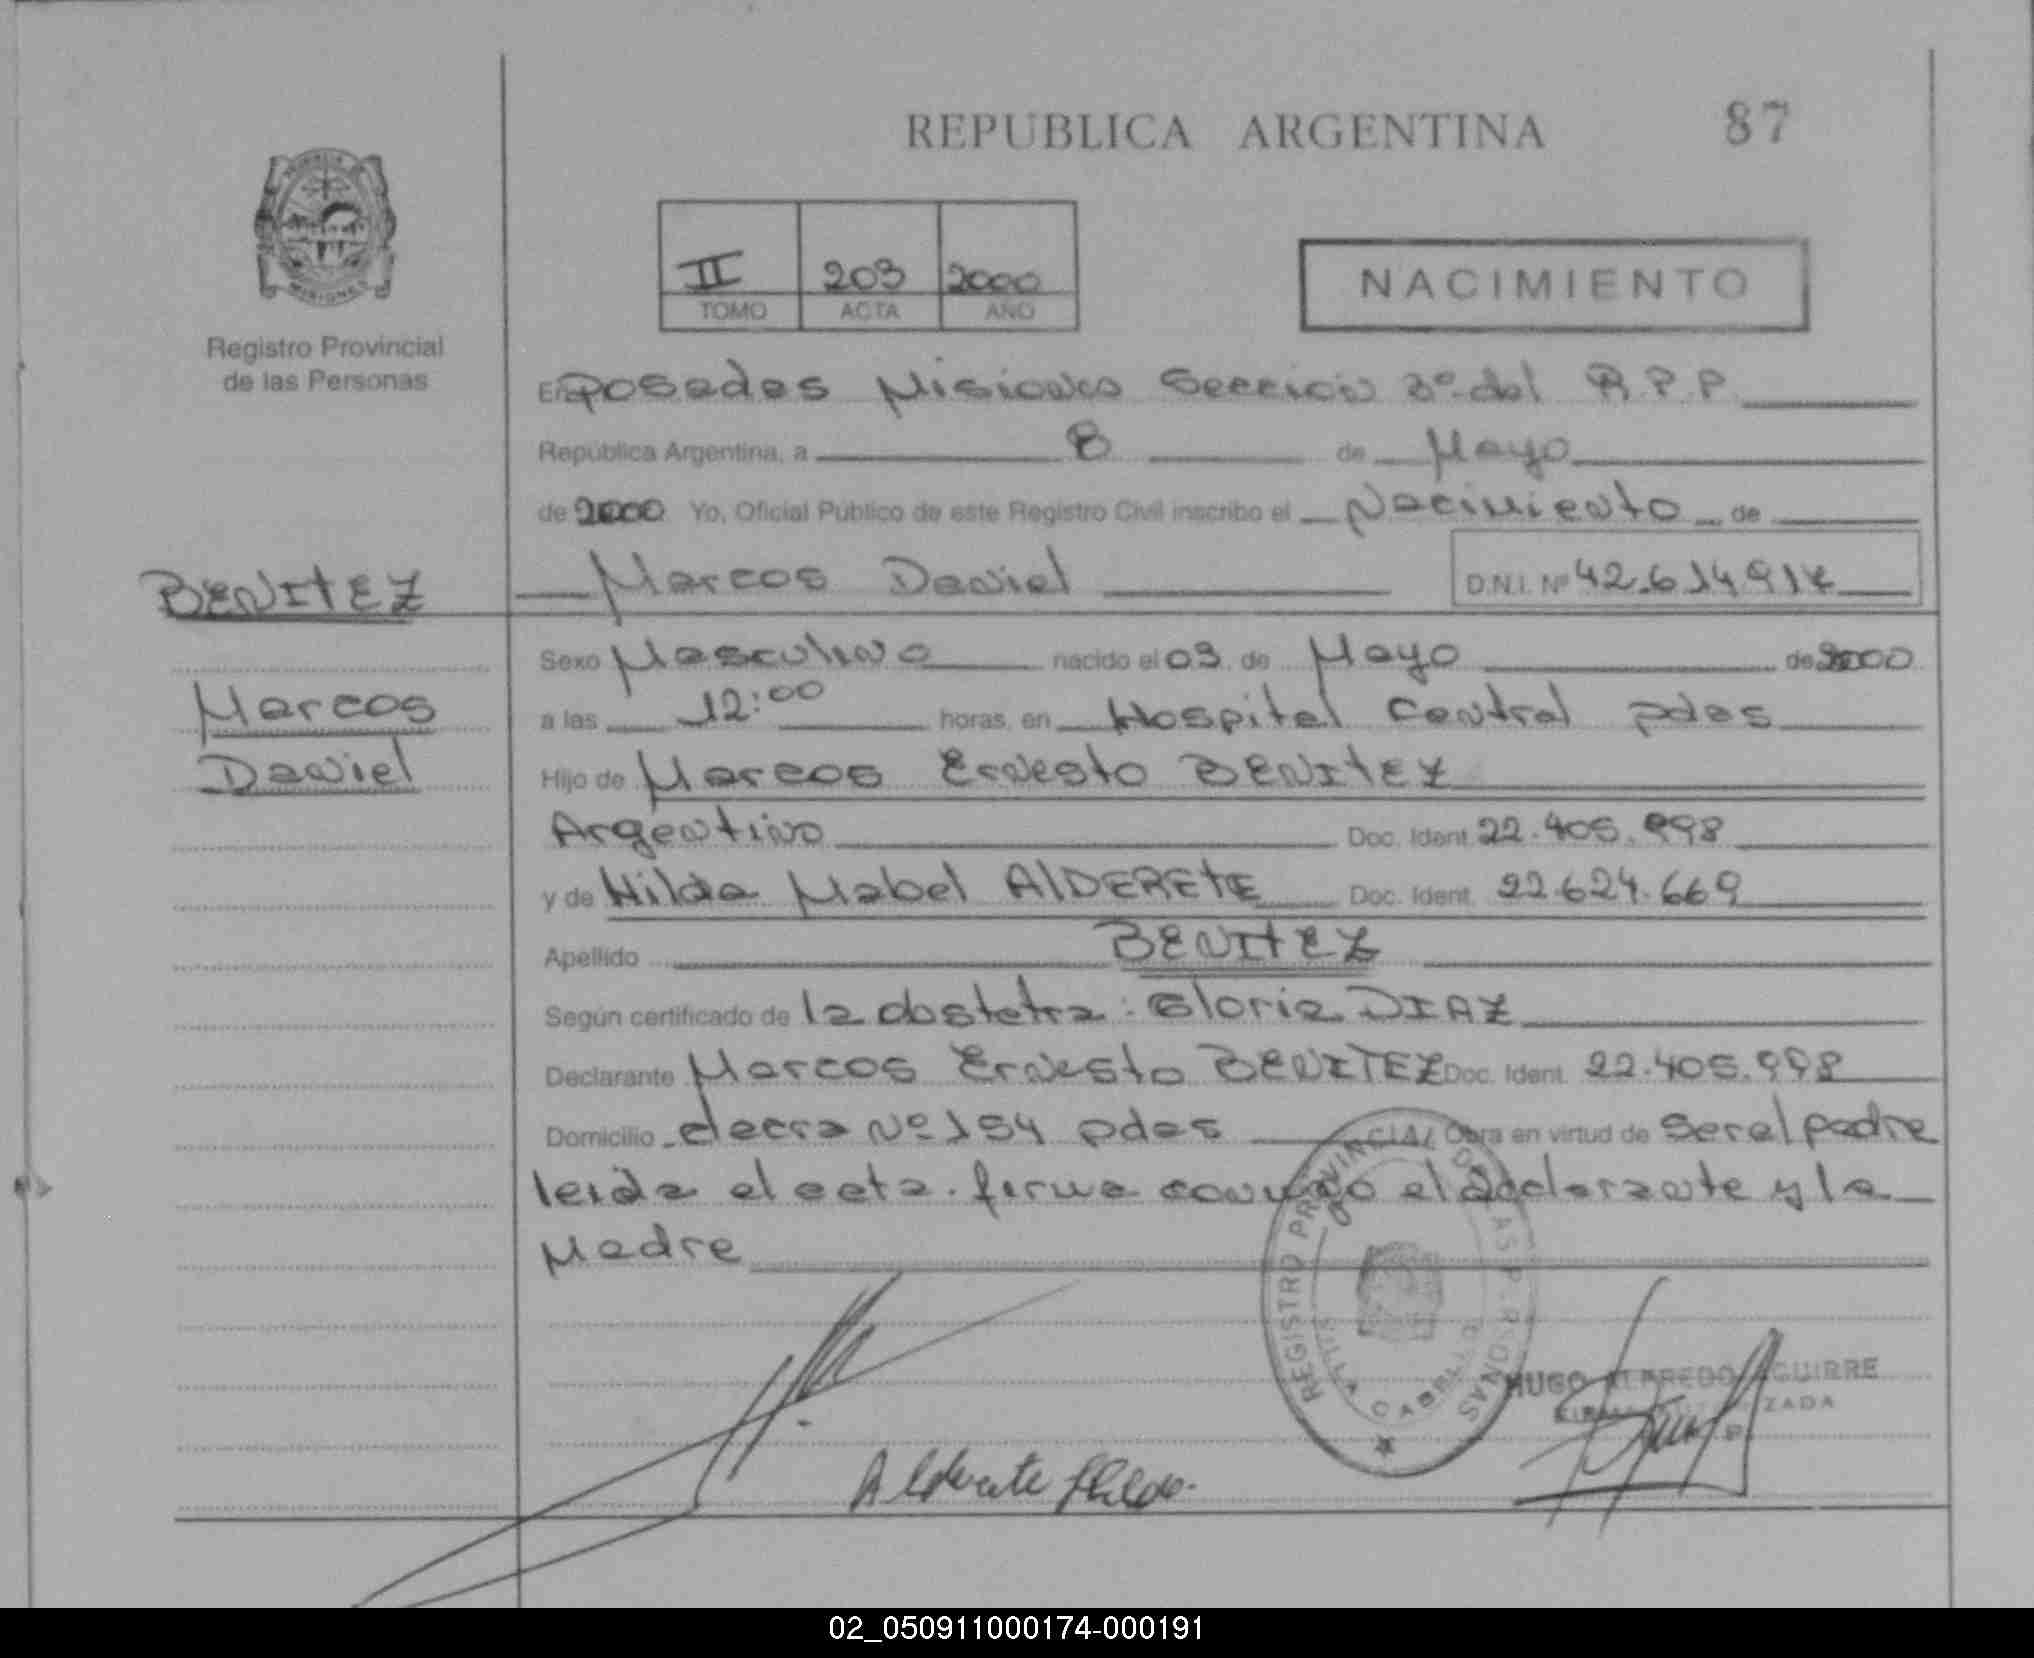 REPUBLICA ARGENTINA
87
MISIONES
Registro Provincial
de las Personas
II 203 2000
TOMO ACTA AÑO
NACIMIENTO
En Posadas Misiones Sección 3º del R.P.P.
República Argentina, a 8 de Mayo
de 2000 Yo, Oficial Público de este Registro Civil inscribo el Nacimiento de
BENITEZ
Marcos Daniel D.N.I. Nº 42.614.917
Sexo Masculino nacido el 03 de Mayo de 2000
Marcos
Daniel
a las 12:00 horas, en Hospital Central pdas
Hijo de Marcos Ernesto BENITEZ
Argentino Doc. Ident. 22.405.998
y de Hilda Mabel AlDERETE Doc. Ident. 22.624.669
Apellido BENITEZ
Según certificado de la obstetra: Gloria DIAZ
Declarante Marcos Ernesto BENITEZ Doc. Ident. 22.405.998
Domicilio Nº 154 pdas Obra en virtud de ser el padre
leida el acta. firma conmigo el declarante y la
Madre
REGISTRO PROVINCIAL DE LAS PERSONAS
VILLA CABELLO
HUGO ALFREDO AGUIRRE
Alderete Hilda.
02_050911000174-000191